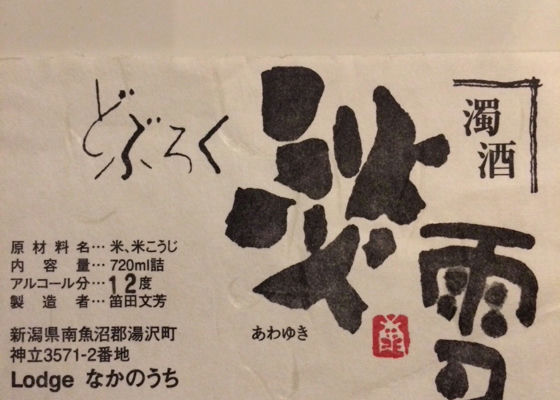 濁酒
淡雪
あわゆき
どぶろく
原材料名…米、米こうじ
内容量…720ml詰
アルコール分…12度
製造者…笛田文芳
新潟県南魚沼郡湯沢町
神立3571-2番地
Lodge なかのうち